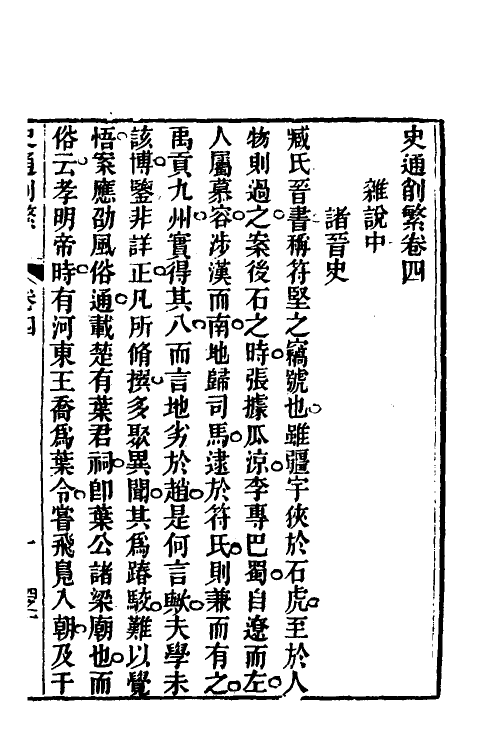 史通削繁卷四
雜說中
諸晉史
臧氏晉書稱符堅之竊號也雖疆宇俠於石虎至於人
物則過之案後石之時張據瓜涼李專巴蜀自遼而左
人屬慕容涉漢而南地歸司馬逮於符氏則兼而有之
禹貢九州實得其八而言地劣於趙是何言歟夫學未
該博鑒非詳正凡所脩撰多聚異聞其爲踳駮難以覺
悟案應劭風俗通載楚有葉君祠卽葉公諸梁廟也而
俗云孝明帝時有河東王喬爲葉令嘗飛鳧入朝及干